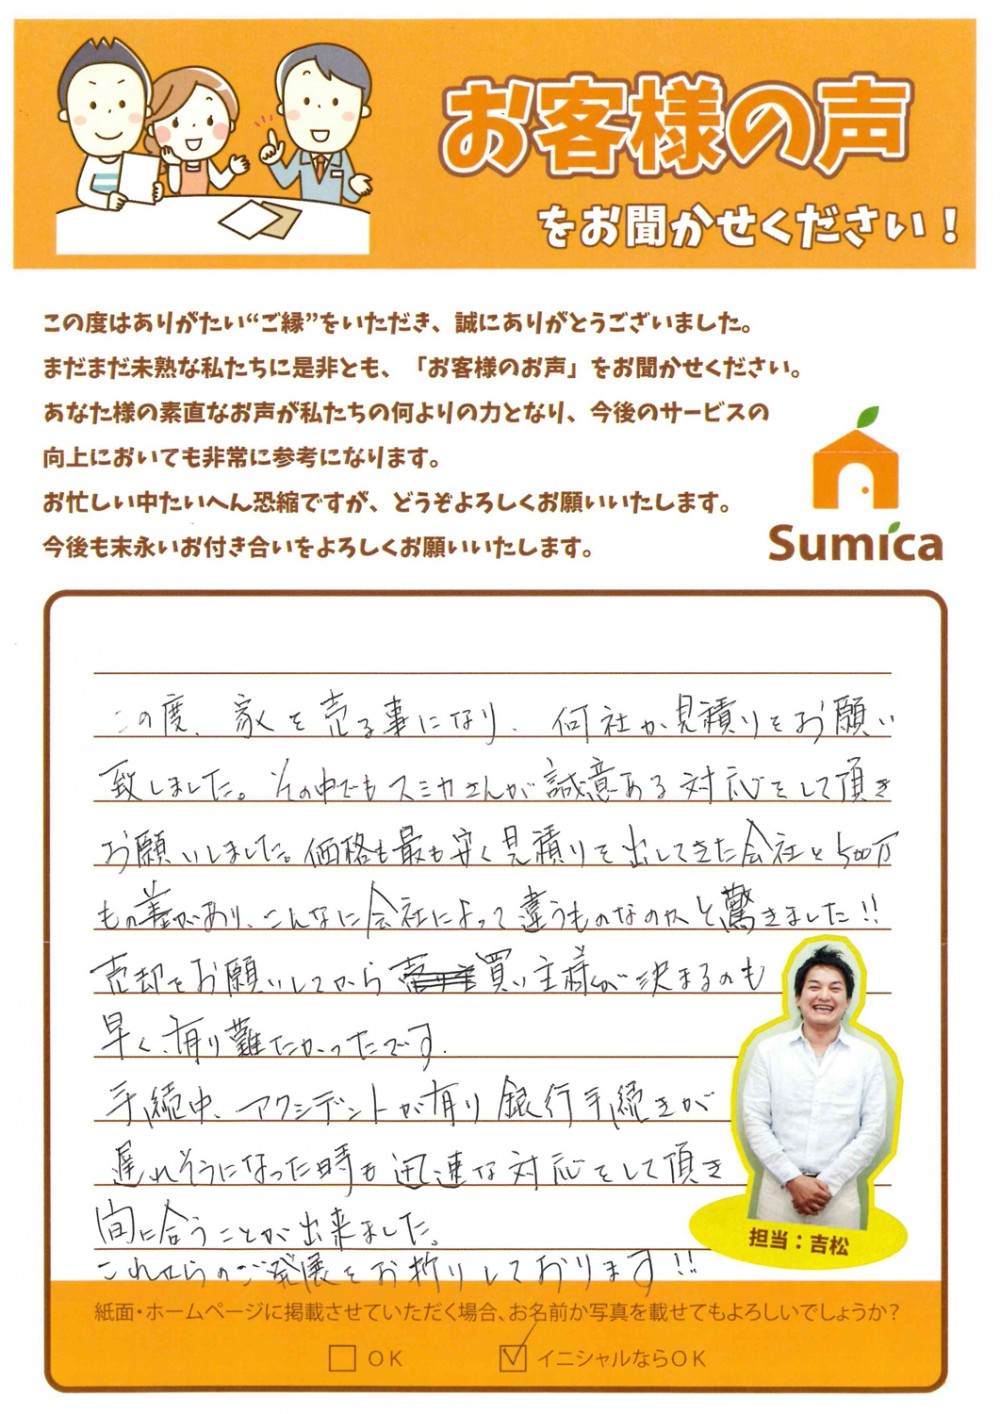 お客様の声
をお聞かせください！
この度はありがたい“ご縁”をいただき、誠にありがとうございました。
まだまだ未熟な私たちに是非とも、「お客様のお声」をお聞かせください。
あなた様の素直なお声が私たちの何よりの力となり、今後のサービスの
向上においても非常に参考になります。
お忙しい中たいへん恐縮ですが、どうぞよろしくお願いいたします。
今後も末永いお付き合いをよろしくお願いいたします。
Sumica
この度、家を売る事になり、何社か見積りをお願い
致しました。その中でもスミカさんが誠意ある対応をして頂き
お願いしました。価格も最も安く見積りを出してきた会社と500万
もの差があり、こんなに会社によって違うものなのかと驚きました!!
売却をお願いしてから買い主様が決まるのも
早く、有り難たかったです。
手続中、アクシデントが有り銀行手続きが
遅れそうになった時も迅速な対応をして頂き
間に合うことが出来ました。
これからのご発展をお祈りしております!!
担当：吉松
紙面・ホームページに掲載させていただく場合、お名前か写真を載せてもよろしいでしょうか？
OK
イニシャルならOK